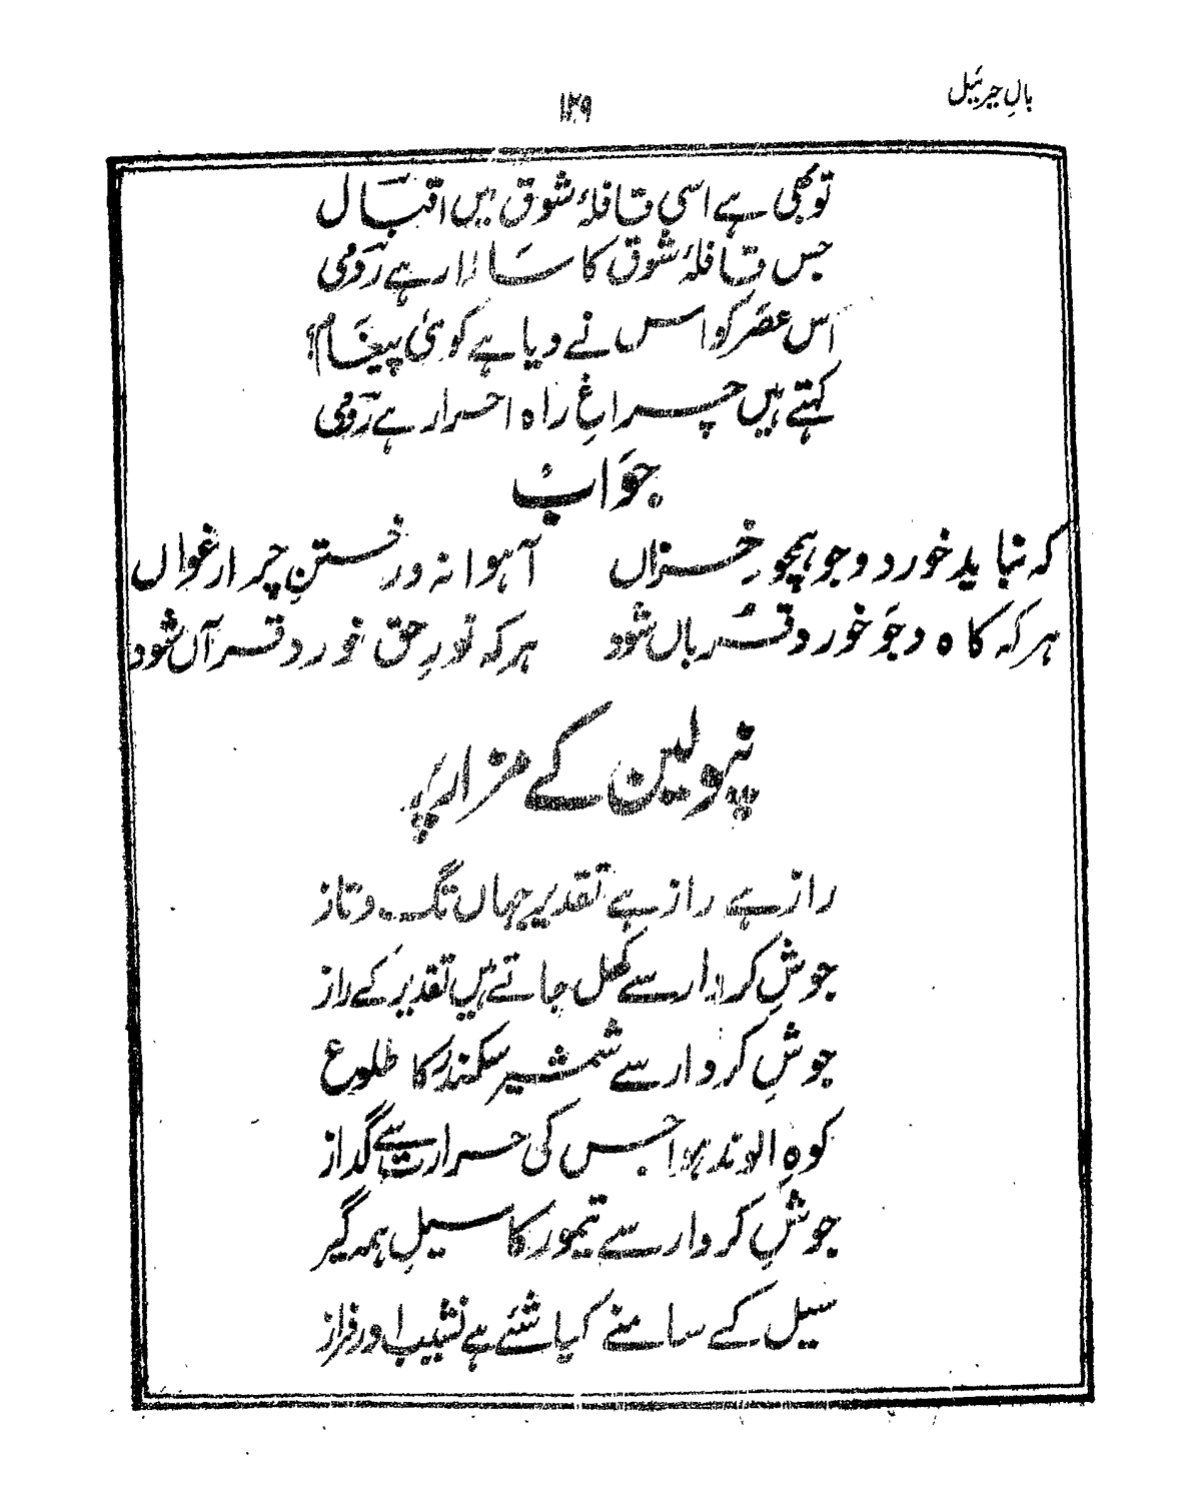 بالِ جبرئیل
۱۲۹
تو بھی ہے اسی قافلۂ شوق میں اقبال
جس قافلۂ شوق کا سالار ہے رومی
اس عصر کو اس نے دیا ہے کوئی پیغام؟
کہتے ہیں چراغِ راہ احرار ہے رومی
جواب
کہ نباید خورد و جو ہمچو خزاں آہوانہ در ختن چر ارغواں
ہر کہ کاہ و جو خورد قرباں شود ہر کہ نورِ حق خورد قرآں شود
نپولین کے مزار پر
راز ہے راز ہے تقدیرِ جہاں تگ و تاز
جوشِ کردار سے کھل جاتے ہیں تقدیر کے راز
جوشِ کردار سے شمشیر سکندر کا طلوع
کوہِ الوند ہوا جس کی حرارت سے گداز
جوشِ کردار سے تیمور کا سیلِ ہمہ گیر
سیل کے سامنے کیا شئے ہے نشیب اور فراز